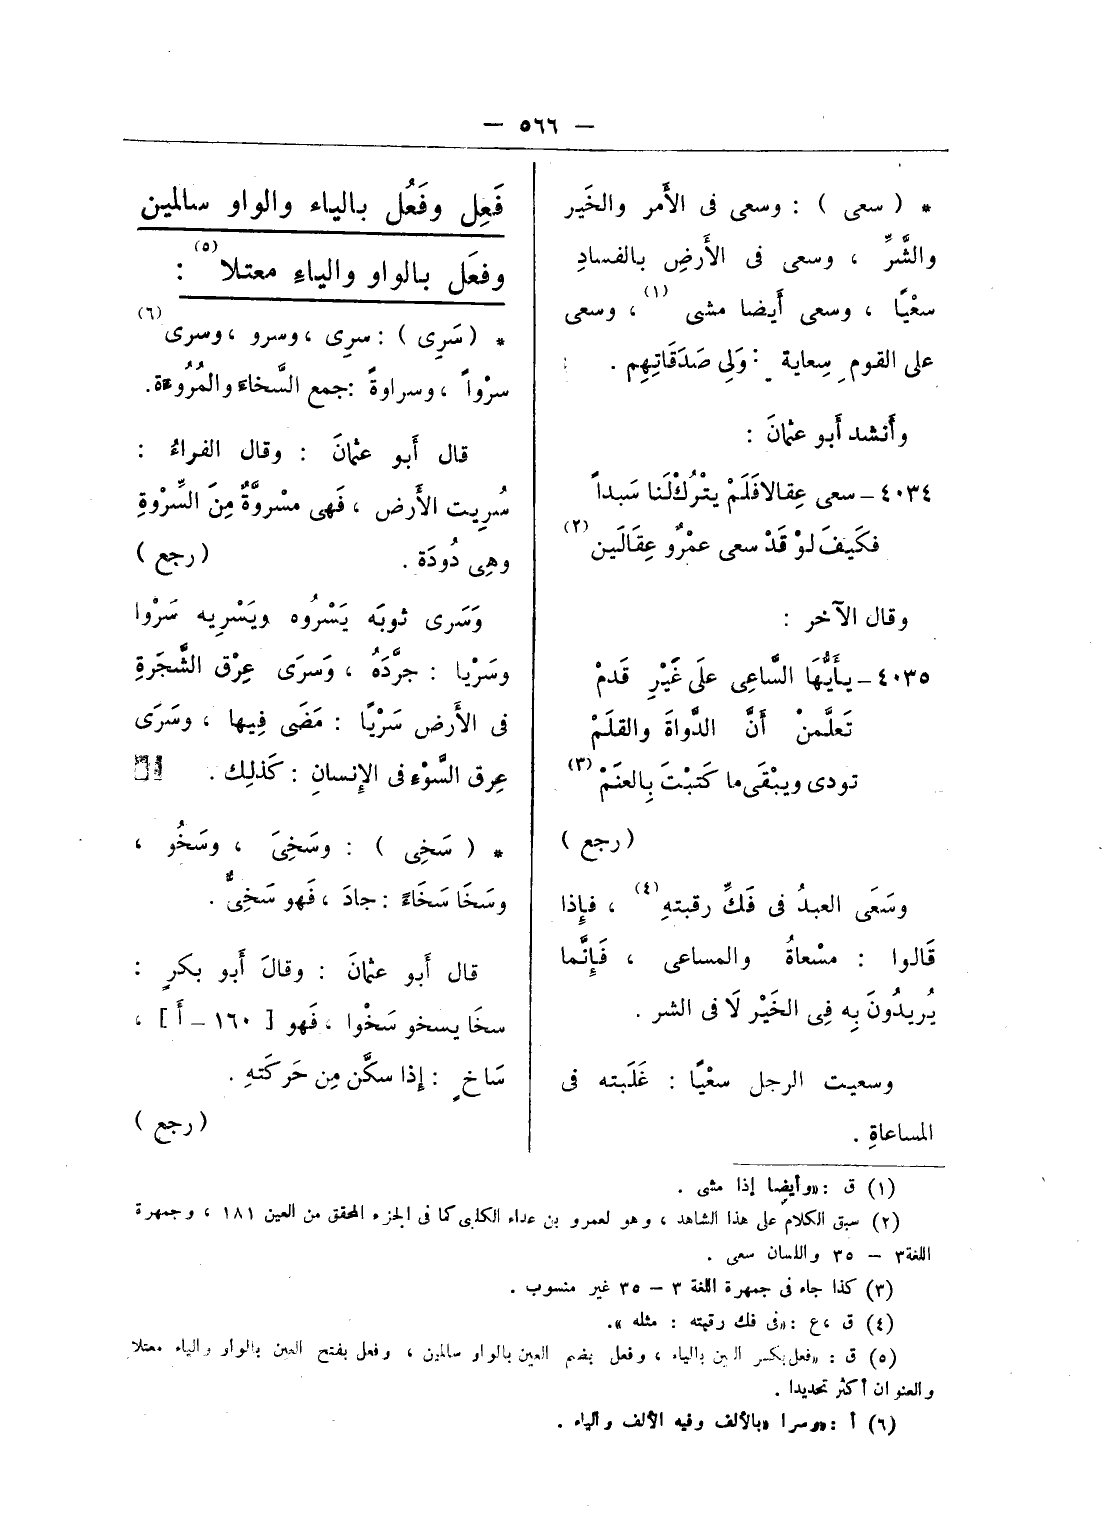 — ٥٦٦ —
* ( سعى ) : وسعى فى الأَمر والخَير
والشَّرِّ ، وسعى فى الأَرضِ بالفسادِ
سعْيًا ، وسعى أَيضا مشى (١) ، وسعى
على القومِ سِعاية : وَلِى صَدَقَاتِهِم .
وأَنشد أَبو عثمانَ :
٤٠٣٤ – سعى عِقالا فَلَمْ يتْرُكْ لَنا سَبداً
فكَيفَ لوْ قَدْ سعى عمْرٌو عِقَالَين (٢)
وقال الآخر :
٤٠٣٥ – يأَيُّهَا السَّاعِى علَى غَيْرِ قَدمْ
تَعلَّمنْ أَنَّ الدَّواةَ والقلَمْ
تودى ويبْقَى ما كَتبْتَ بِالعنَمْ (٣)
( رجع )
وسَعَى العبدُ فى فَكِّ رقبتهِ (٤) ، فإِذا
قَالوا : مسْعاةُ والمساعى ، فَإِنَّما
يُريدُونَ بِه فِى الخَيْر لَا فى الشر .
وسعيت الرجل سعْيًا : غَلَبته فى
المساعاةِ .
فَعِل وفَعُل بالياء والواو سالمين
وفعَل بالواو والياءِ معتلا (٥) :
* ( سَرِى ) : سرِى ، وسرو ، وسرى (٦)
سرْواً ، وسراوةً : جمع السَّخاءَ والمُرُوءَة .
قال أَبو عثمانَ : وقال الفراءُ :
سُرِيت الأَرض ، فَهى مسْروَّةٌ مِنَ السِّرْوةِ
وهِى دُودَة . ( رجع )
وَسَرى ثوبَه يَسْرُوه ويَسْرِيه سَرْوا
وسَرْيا : جرَّدَهُ ، وَسرَى عِرْق الشَّجَرةِ
فى الأَرض سَرْيًا : مَضَى فِيها ، وسَرَى
عِرق السَّوْء فى الإِنسانِ : كَذلِك .
* ( سَخِى ) : وسَخِىَ ، وسَخُو ،
وسَخَا سَخَاءً : جادَ ، فَهو سَخِىٌّ .
قال أَبو عثمانَ : وقالَ أَبو بكرٍ :
سخَا يسخو سَخْوا ، فَهو [ ١٦٠ – أَ ] ،
سَاخٍ : إِذا سكَّن مِن حَركَتهِ .
( رجع )
(١) ق : «وأيضا إذا مشى .
(٢) سبق الكلام على هذا الشاهد ، وهو لعمرو بن عداء الكلبى كما فى الجزء المحقق من العين ١٨١ ، وجمهرة
اللغة ٣ – ٣٥ واللسان سعى .
(٣) كذا جاء فى جمهرة اللغة ٣ – ٣٥ غير منسوب .
(٤) ق ، ع : «فى فك رقبته : مثله » .
(٥) ق : «فعل بكسر العين بالياء ، وفعل بضم العين بالواو سالمين ، وفعل بفتح العين بالواو والياء معتلا
والعنوان أكثر تحديدا .
(٦) أ : «وسرا » بالألف وفيه الألف والياء .